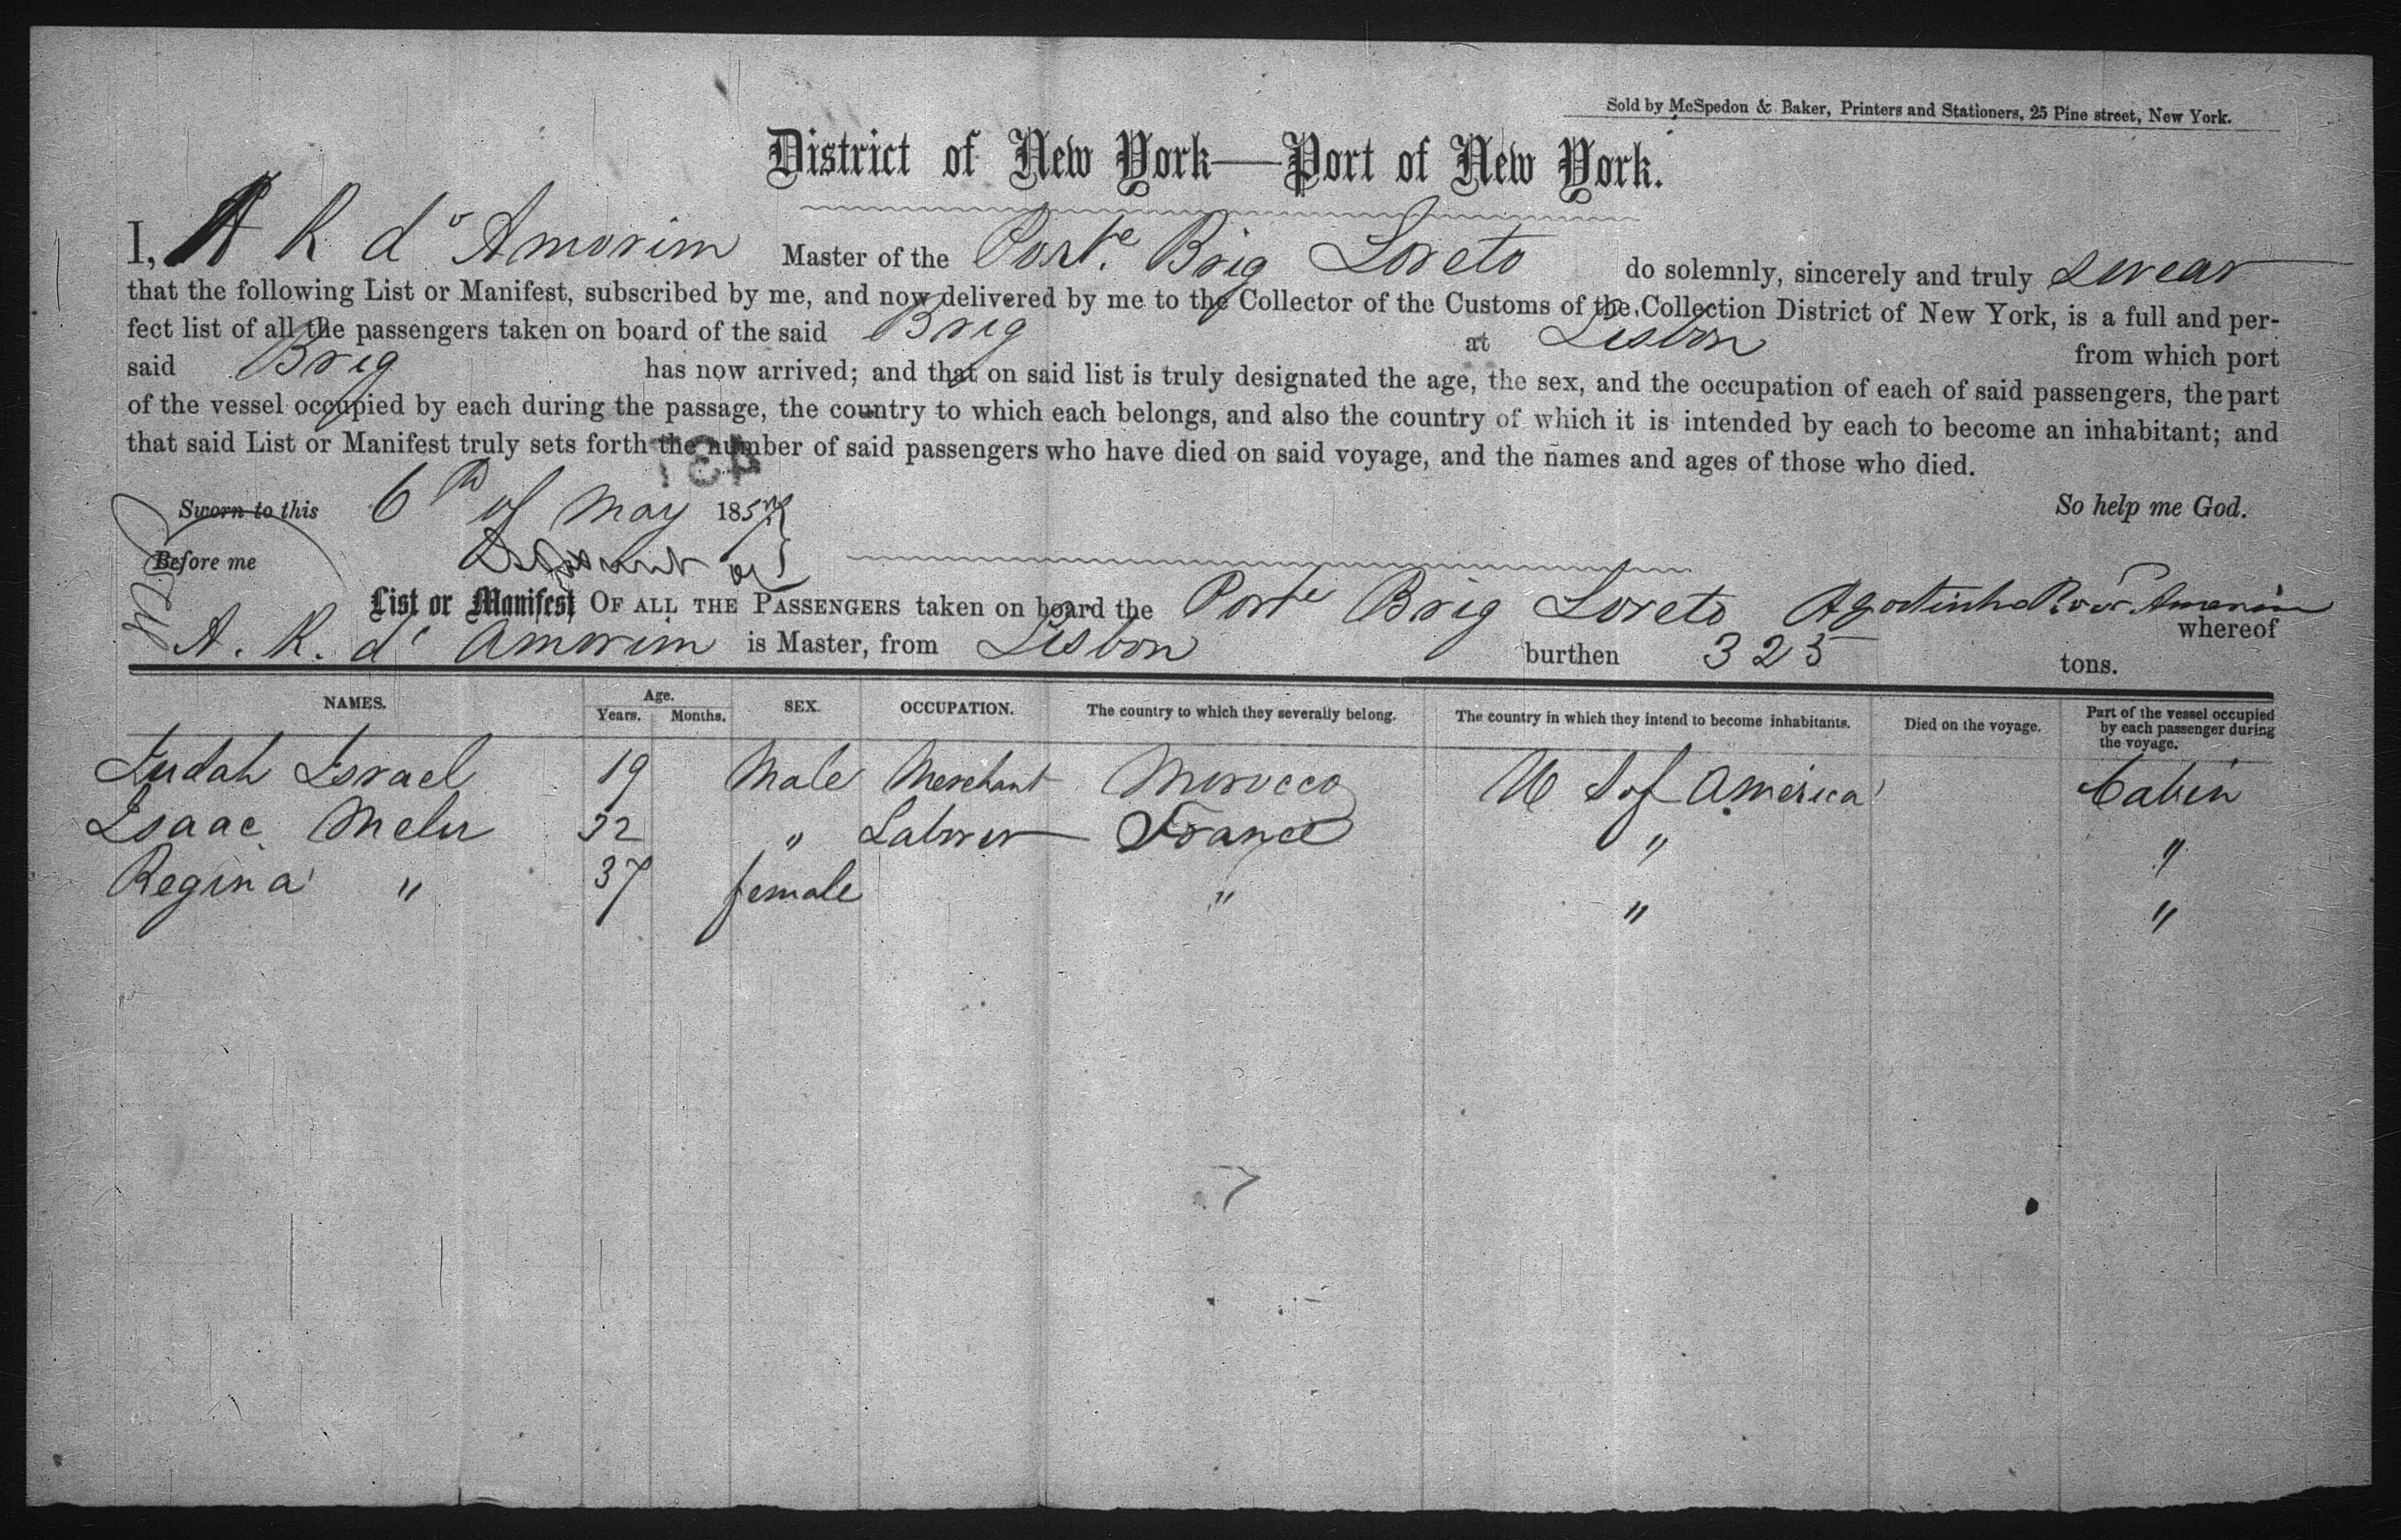 Sold by McSpedon & Baker, Printers and Stationers, 25 Pine street, New York.
District of New York—Port of New York.
I, A R d' Amorim Master of the Porte. Brig Loreto do solemnly, sincerely and truly swear
that the following List or Manifest, subscribed by me, and now delivered by me to the Collector of the Customs of the Collection District of New York, is a full and per-
fect list of all the passengers taken on board of the said Brig at Lisbon from which port
said Brig has now arrived; and that on said list is truly designated the age, the sex, and the occupation of each of said passengers, the part
of the vessel occupied by each during the passage, the country to which each belongs, and also the country of which it is intended by each to become an inhabitant; and
that said List or Manifest truly sets forth the number of said passengers who have died on said voyage, and the names and ages of those who died.
Sworn to this 6th of May 185 So help me God.
Before me
List or Manifest OF ALL THE PASSENGERS taken on board the Porte Brig Loreto Amorim whereof
A. R. d' Amorim is Master, from Lisbon burthen 325 tons.
NAMES. Age. Years. Months. SEX. OCCUPATION. The country to which they severally belong. The country in which they intend to become inhabitants. Died on the voyage. Part of the vessel occupied by each passenger during the voyage.
Judah Israel 19 Male Merchant Morocco U S of America Cabin
Isaac 32 " Laborer France " "
Regina " 37 female " " "